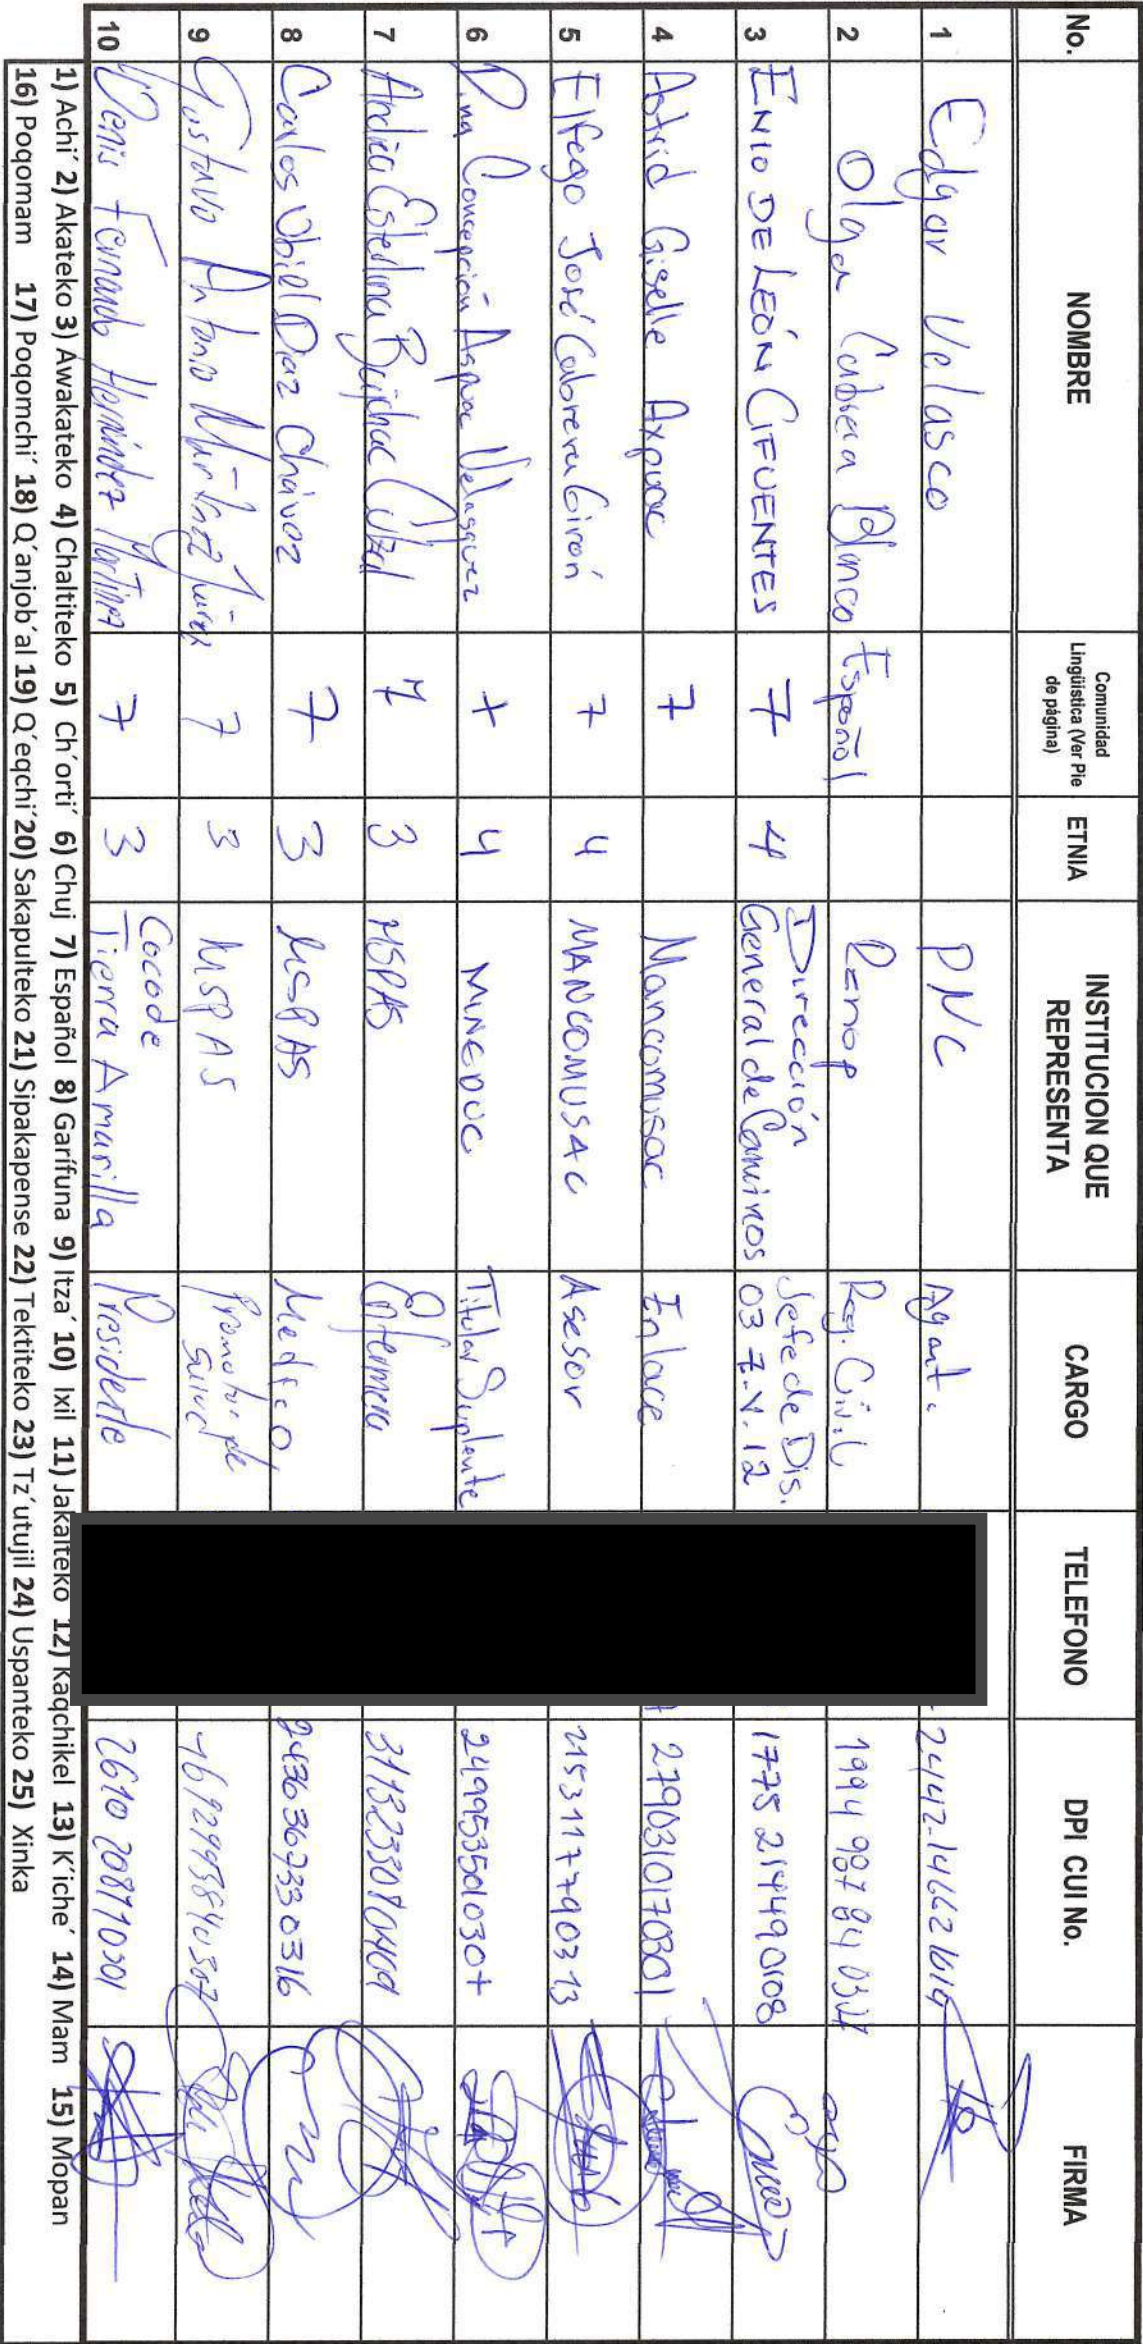 No. NOMBRE Comunidad Lingüística (Ver Pie de página) ETNIA INSTITUCION QUE REPRESENTA CARGO TELEFONO DPI CUI No. FIRMA
1 Edgar Velasco PNC Agent.
2 Olga Cabrera Blanco Español Renap Reg. Civil
3 ENIO DE LEÓN CIFUENTES 7 4 Dirección General de Caminos Jefe de Dis. 03 Z.V. 12 1775 214490108
4 Astrid Giselle Axpuac 7 Mancomusac Enlace 2790310170301
5 Elfego José Cabrera Girón 7 4 MANCOMUSAC Asesor 2153117790313
6 Concepción Velasquez 4 MINEDUC Titular Suplente
7 Andrea Esterlina 7 3 MSPAS Enfermera
8 Carlos Obiel Diaz Chávez 7 3 MSPAS Medico 2436367330316
9 Gustavo Antonio Martínez Juárez 7 3 MSPAS Promotor de
10 Denis Fernando Hernández Martínez 7 3 Cocode Tierra Amarilla Presidente
1) Achi´ 2) Akateko 3) Awakateko 4) Chaltiteko 5) Ch´orti´ 6) Chuj 7) Español 8) Garífuna 9) Itza´ 10) Ixil 11) Jakalteko 12) Kaqchikel 13) K´iche´ 14) Mam 15) Mopan
16) Poqomam 17) Poqomchi´ 18) Q´anjob´al 19) Q´eqchi´ 20) Sakapulteko 21) Sipakapense 22) Tektiteko 23) Tz´utujil 24) Uspanteko 25) Xinka